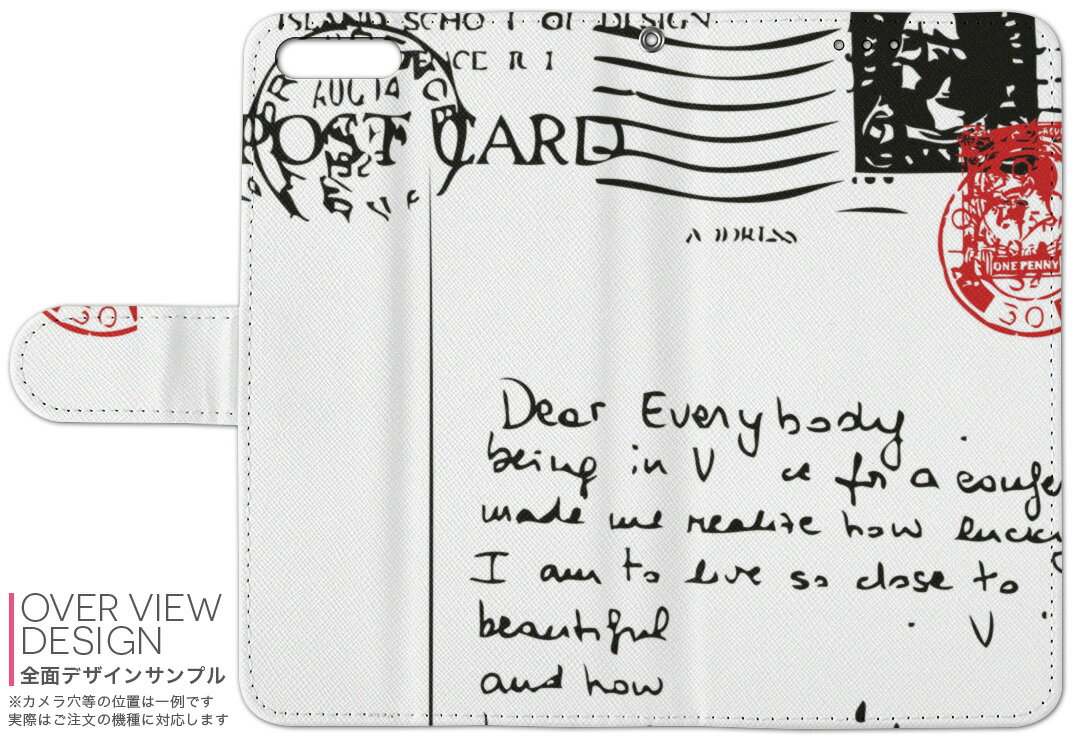 ISLAND SCHO L OF DESIGN
ENCE R I
AUG 14
POST CARD
ONE PENNY
30
30
Dear Everybody
being in V ce for a confe
made me realize how lucky
I am to live so close to
beautiful V
and how
OVER VIEW
DESIGN
全面デザインサンプル
※カメラ穴等の位置は一例です
実際はご注文の機種に対応します